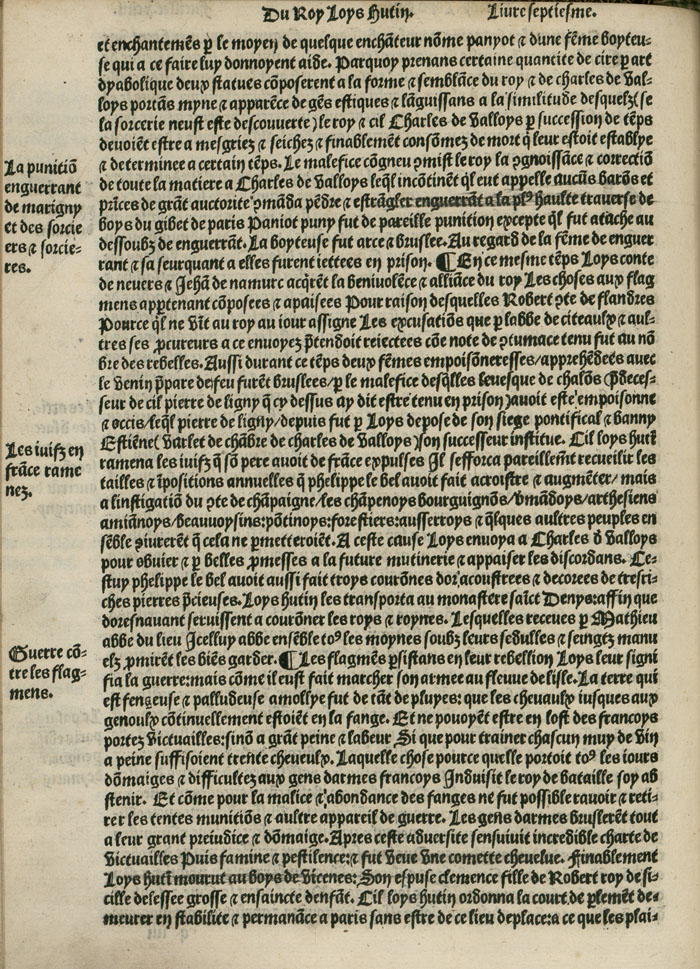 Du Roy Loys Hutin. Liure septiesme.
et enchantemẽs ꝑ le moyen de quelque enchãteur nõme panyot ⁊ dune fẽme boyteu-
se qui a ce faire luy donnoyent aide. Parquoy prenans certaine quantite de cire ꝑ art
dyabolique deux statues cõposerent a la forme ⁊ semblãce du roy ⁊ de charles de Val-
loys portãs myne ⁊ apparẽce de gẽs estiques ⁊ lãguissans a la similitude desquelz (se
la sorcerie neust este descouuerte) le roy ⁊ cil Charles de Valloys ꝑ succession de tẽps
deuoiẽt estre amesgriez ⁊ seichez ⁊ finablemẽt consõmez de mort q̃ leur estoit establye
⁊ determinee a certain tẽps. Le malefice cõgneu ꝯmist le roy la ꝯgnoissãce ⁊ correctiõ
de toute la matiere a Charles de Valloys leq̃l incõtinẽt q̃l eut appelle aucũs barõs et
prĩces de grãt auctorite ꝯmãda pẽdre ⁊ estrãgler enguerrãt a la plꝰ haulte trauerse de
boys du gibet de paris Paniot puny fut de pareille punition excepte q̃l fut atache au
dessoubz de enguerrãt. La boyteuse fut arce ⁊ bruslee. Au regard de la fẽme de enguer
rant ⁊ sa seur quant a elles furent iettees en prison. ¶ En ce mesme tẽps Loys conte
de neuers ⁊ Jehã de namurc acq̃rẽt la beniuolẽce ⁊ alliãce du roy Les choses aux flag
mens appartenant cõposees ⁊ apaisees Pour raison desquelles Robert ꝯte de flandres
Pource q̃l ne vĩt au roy au iour assigne Les excusatiõs que ꝑ labbe de citeaulx ⁊ aul-
tres ses ꝓcureurs a ce enuoyez p̃tendoit reiectees cõe note de ꝯtumace tenu fut au nõ
bre des rebelles. Aussi durant ce tẽps deux fẽmes empoisõneresses/apprehẽdees auec
le venin p̃pare de feu furẽt bruslees/ꝑ le malefice desq̃lles leuesque de chalõs (p̃deces-
seur de cil pierre de ligny q̃ cy dessus ay dit estre tenu en prison) auoit este empoisonne
⁊ occis/leq̃l pierre de ligny/depuis fut ꝑ Loys depose de son siege pontifical ⁊ banny
Estiẽne (varlet de chãbre de charles de Valloys) son successeur institue. Cil loys hutĩ
ramena les iuifz q̃ sõ pere auoit de frãce expulses Il sefforca pareillemẽt recueilir les
tailles ⁊ ĩpositions annuelles q̃ phelippe le bel auoit fait acroistre ⁊ augmẽter/mais
a linstigatiõ du ꝯte de chãpaigne/les chãpenoys bourguignõs/v̾mãdoys/arthesiens
amiãnoys/beauuoysins: põtinoys: forestiers: ausserroys ⁊ q̃lques aultres peuples en
sẽble ꝯiurerẽt q̃ cela ne ꝑmetteroiẽt. A ceste cause Loys enuoya a Charles d̾ Valloys
pour obuier ⁊ ꝑ belles ꝓmesses a la future mutinerie ⁊ appaiser les discordans. Ce-
stuy phelippe le bel auoit aussi fait troys courõnes dor acoustrees ⁊ decorees de tresri-
ches pierres p̃cieuses. Loys hutin les transporta au monastere saĩct Denys: affin que
doresnauant seruissent a courõner les roys ⁊ roynes. Lesquelles receues ꝑ Mathieu
abbe du lieu Icelluy abbe ensẽble toꝰ les moynes soubz leurs sedulles ⁊ seingtz manu
elz ꝓmirẽt les biẽs garder. ¶ Les flagmẽs ꝑsistans en leur rebellion Loys leur signi
fia la guerre: mais cõme il eust fait marcher son armee au fleuue de lisle. La terre qui
est fengeuse ⁊ palludeuse amollye fut de tãt de pluyes: que les cheuaulx iusques aux
genoulx cõtinuellement estoiẽt en la fange. Et ne pouoyẽt estre en lost des francoys
portez victuailles: sinõ a grãt peine ⁊ labeur Si que pour trainer chascun muy de vin
a peine suffisoient trente cheuculx. Laquelle chose pource quelle portoit toꝰ les iours
dõmaiges ⁊ difficultez aux gens darmes francoys Induisit le roy de bataille soy ab
stenir. Et cõme pour la malice ⁊ abondance des fanges ne fut possible rauoir ⁊ reti-
rer les tentes munitiõs ⁊ aultre appareil de guerre. Les gens darmes bruslerẽt tout
a leur grant preiudice ⁊ dõmaige. Apres ceste aduersite sensuiuit incredible charte de
victuailles Puis famine ⁊ pestilence: ⁊ fut veue vne comette cheuelue. Finablement
Loys hutĩ mourut au boys de vicenes: Son espuse clemence fille de Robert roy de si-
cille delessee grosse ⁊ ensaincte denfãt. Cil loys hutin ordonna la court de ꝑlemẽt de-
meurer en stabilite ⁊ permanãce a paris sans estre de ce lieu deplace: a ce que les plai-
La punitiõ
enguerrant
de marigny
et des sorcie
ers ⁊ sorcie-
res.
Les iuifz en
frãce rame
nez.
Guerre cõ-
tre les flag-
mens.